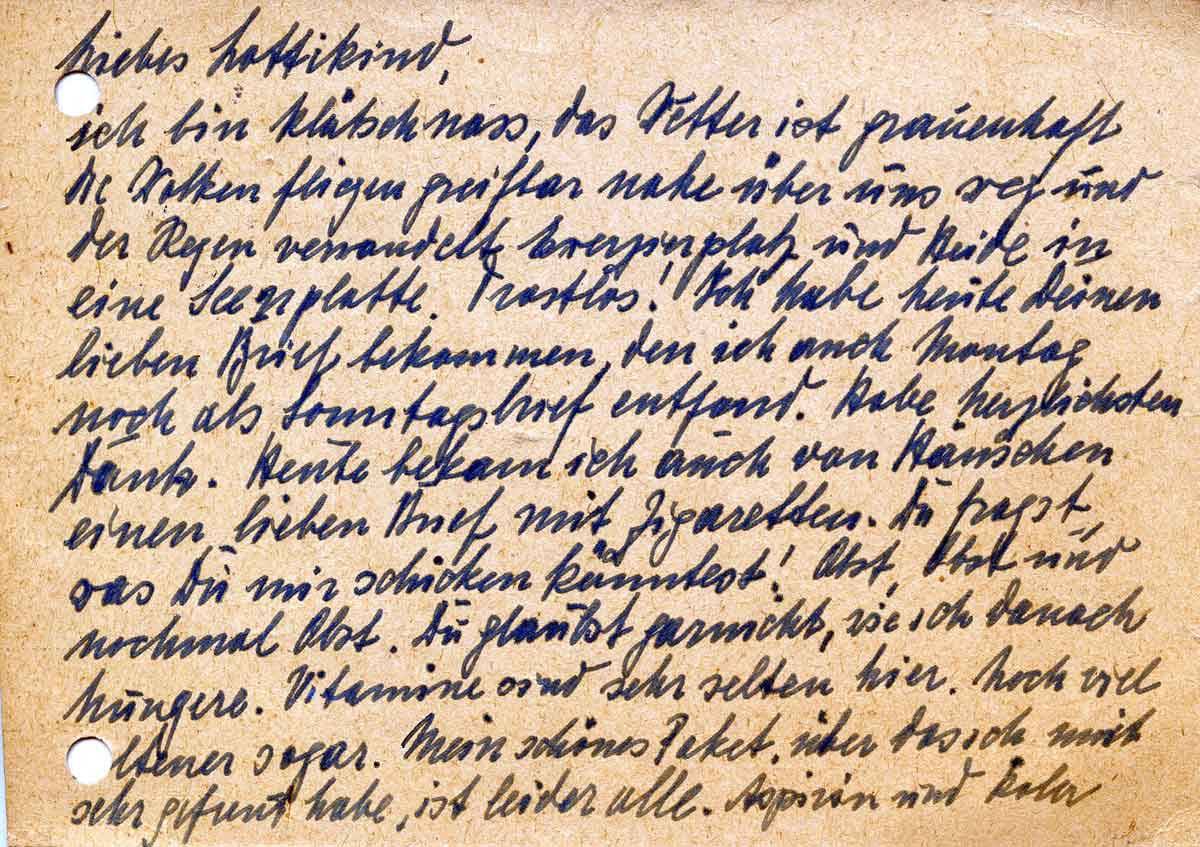 Liebes Lottikind,
ich bin klätschnass, das Wetter ist grauenhaft
Die Wolken fliegen greifbar nahe über uns weg und
der Regen verwandelt Exerzierplatz und Heide in
eine Seenplatte. Trostlos! Ich habe heute Deinen
lieben Brief bekommen, den ich auch Montag
noch als Sonntagsbrief entfand. Habe herzlichsten
Dank. Heute bekam ich auch von Häuschen
einen lieben Brief mit Zigaretten. Du fragst,
was Du mir schicken könntest! Obst, Obst und
nochmal Obst. Du glaubst garnicht, wie ich danach
hungere. Vitamine sind sehr selten hier. Noch viel
ltener sogar. Mein schönes Paket, über das ich mich
sehr gefreut habe, ist leider alle. Aspirin und